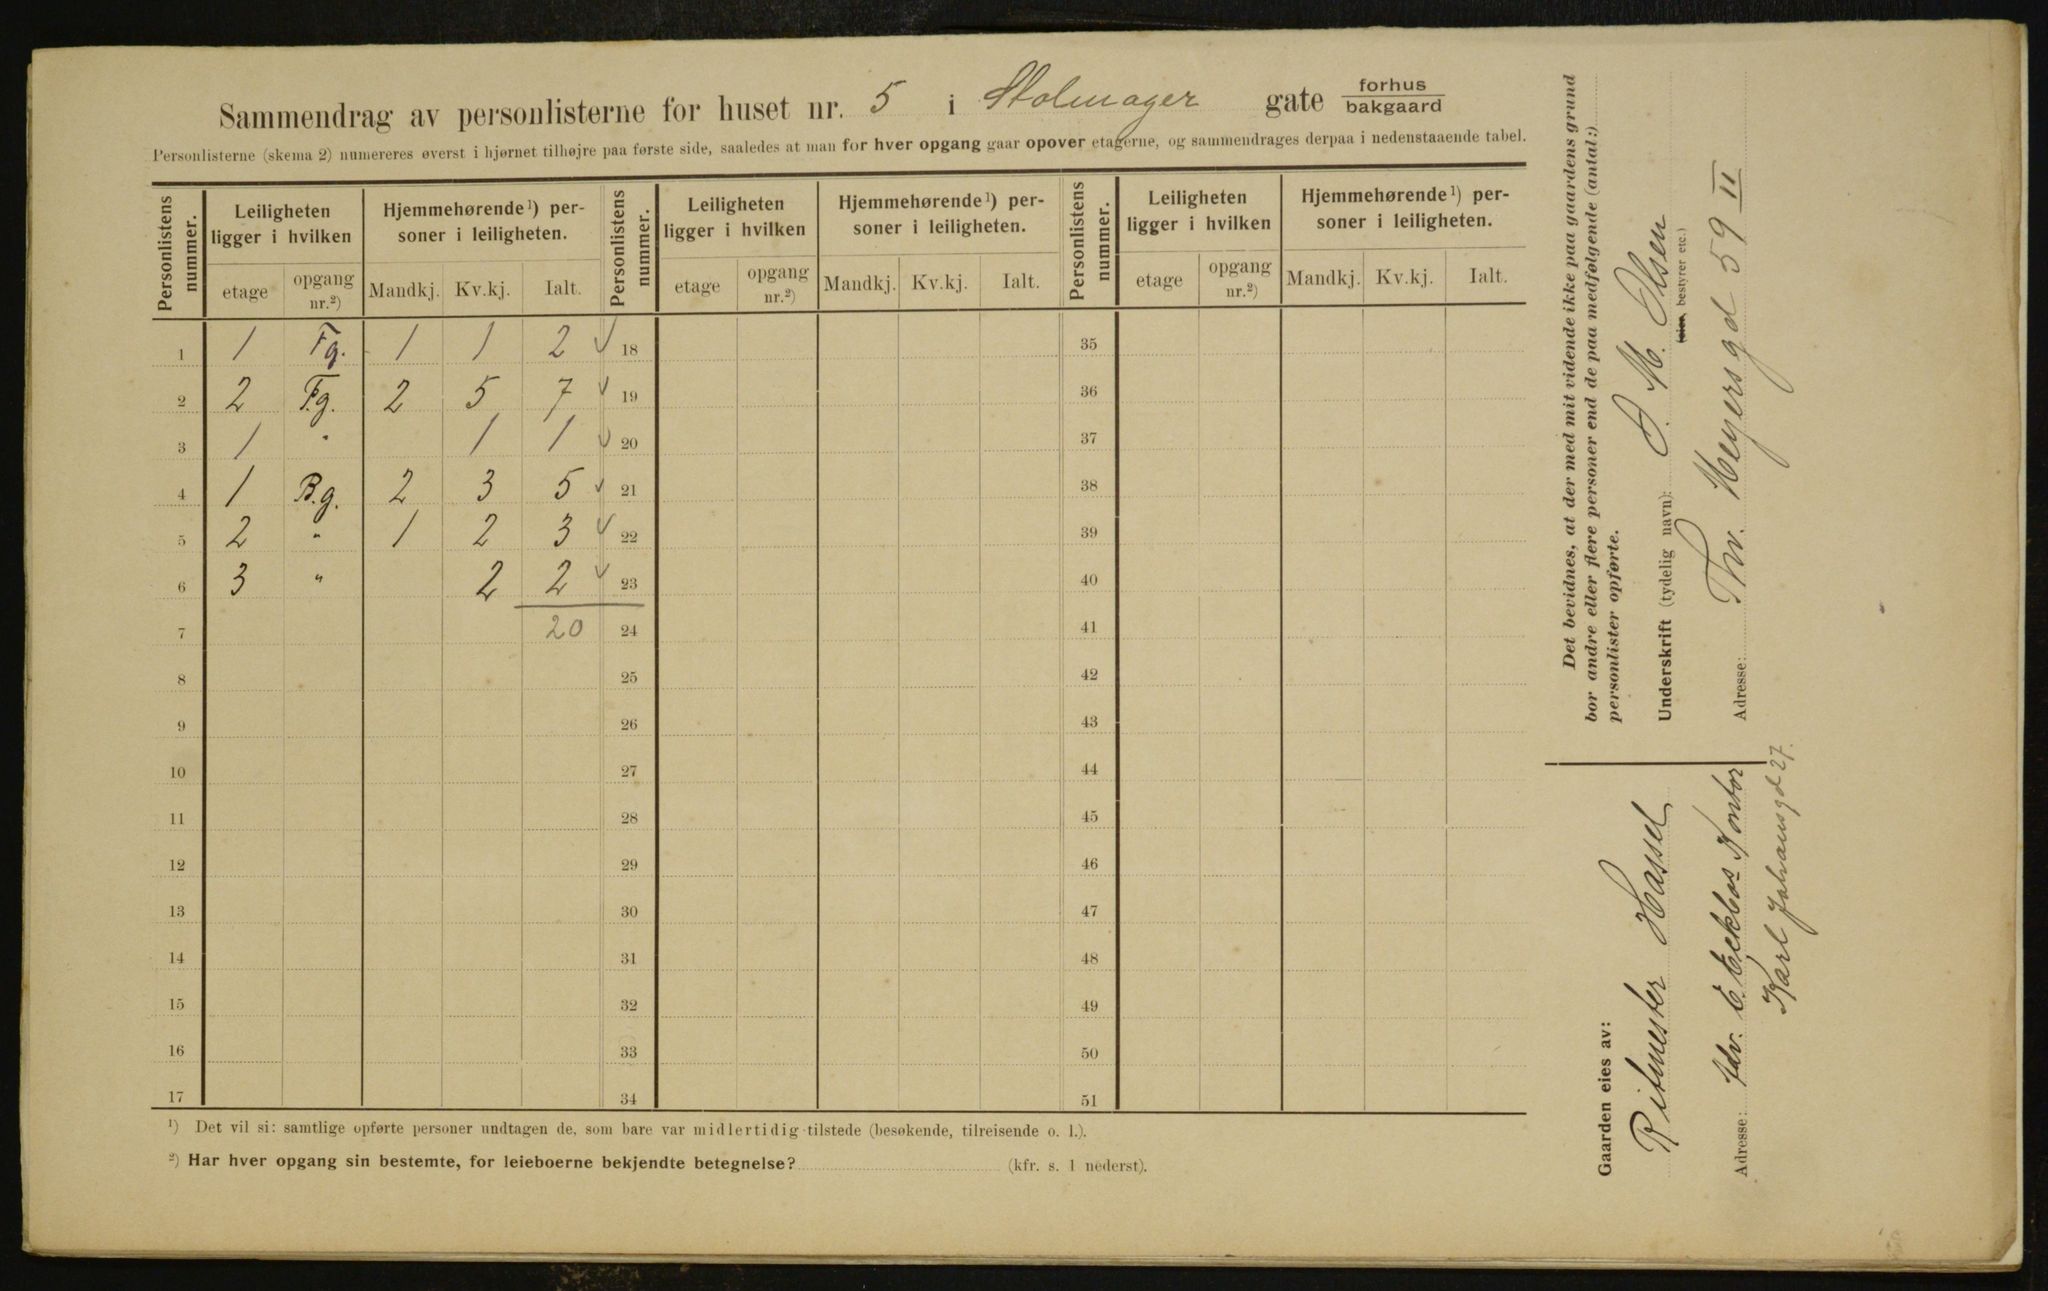 Sammendrag av personlisterne for huset nr. 5 i Stolmager gate forhus bakgaard
Personlisterne (skema 2) numereres øverst i hjørnet tilhøjre paa første side, saaledes at man for hver opgang gaar opover etagerne, og sammendrages derpaa i nedenstaaende tabel.
Personlistens nummer. Leiligheten ligger i hvilken Hjemmehørende ¹) personer i leiligheten. Personlistens nummer. Leiligheten ligger i hvilken Hjemmehørende ¹) personer i leiligheten. Personlistens nummer. Leiligheten ligger i hvilken Hjemmehørende ¹) personer i leiligheten.
etage opgang nr.²) Mandkj. Kv.kj. Ialt. etage opgang nr.²) Mandkj. Kv.kj. Ialt. etage opgang nr.²) Mandkj. Kv.kj. Ialt.
1 1 Fg. 1 1 2 ✓ 18 35
2 2 F.g. 2 5 7 ✓ 19 36
3 1 " 1 1 ✓ 20 37
4 1 B.g. 2 3 5 ✓ 21 38
5 2 " 1 2 3 ✓ 22 39
6 3 " 2 2 ✓ 23 40
7 20 24 41
8 25 42
9 26 43
10 27 44
11 28 45
12 29 46
13 30 47
14 31 48
15 32 49
16 33 50
17 34 51
¹) Det vil si: samtlige opførte personer undtagen de, som bare var midlertidig tilstede (besøkende, tilreisende o. l.).
²) Har hver opgang sin bestemte, for leieboerne bekjendte betegnelse? (kfr. s. 1 nederst).
Det bevidnes, at der med mit vidende ikke paa gaardens grund
bor andre eller flere personer end de paa medfølgende (antal:)
personlister opførte.
Underskrift (tydelig navn): O. M. Olsen
eier, bestyrer etc.)
Adresse: Thv. Meyersgd 59 II
Gaarden eies av:
Ritmester Hassel
Adresse: Adv. E. Eckbos Kontor
Karl Johansgd 27.